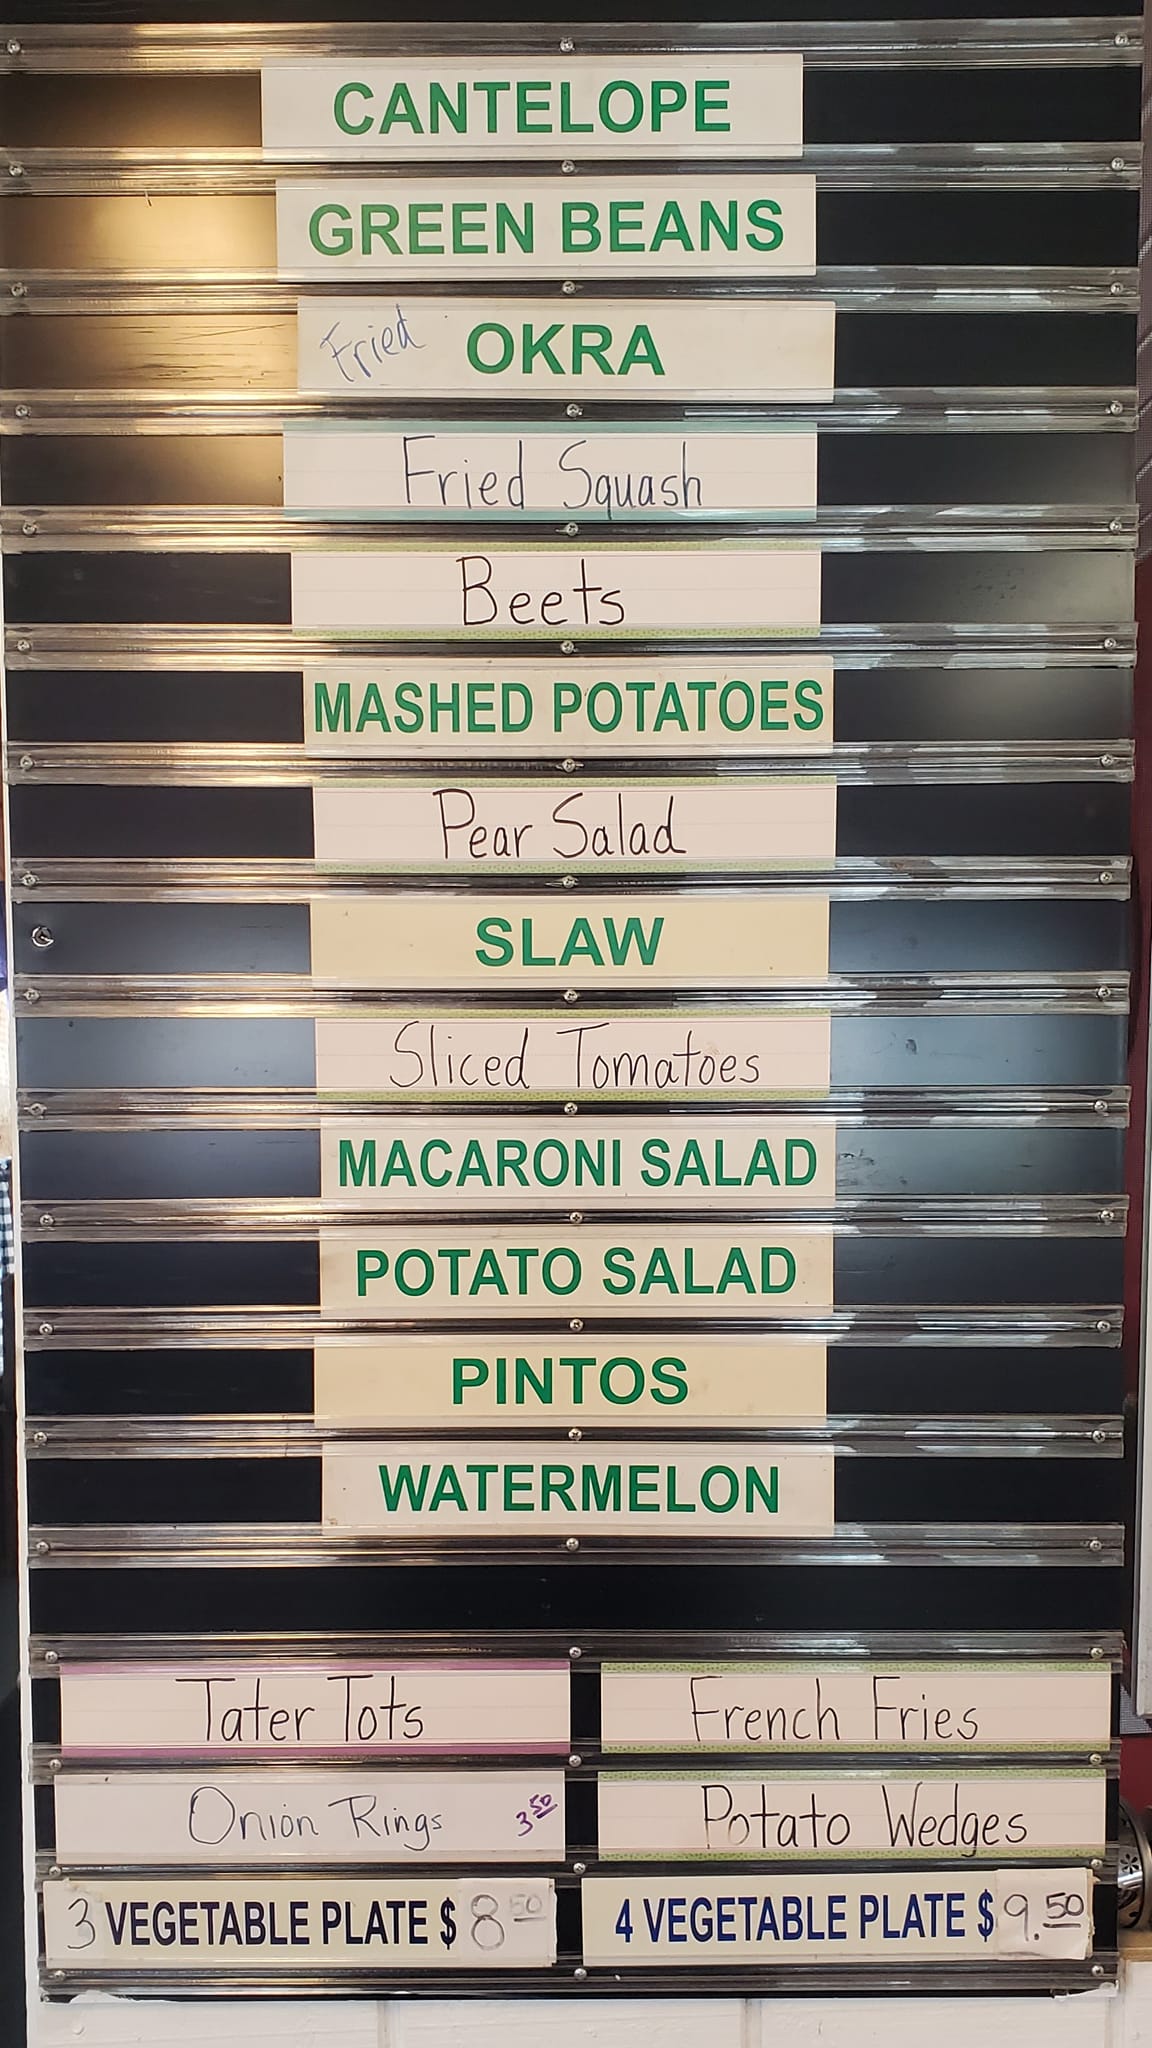 CANTELOPE
GREEN BEANS
Fried OKRA
Fried Squash
Beets
MASHED POTATOES
Pear Salad
SLAW
Sliced Tomatoes
MACARONI SALAD
POTATO SALAD
PINTOS
WATERMELON
Tater Tots
French Fries
Onion Rings 3.50
Potato Wedges
3 VEGETABLE PLATE $ 8 50
4 VEGETABLE PLATE $ 9.50